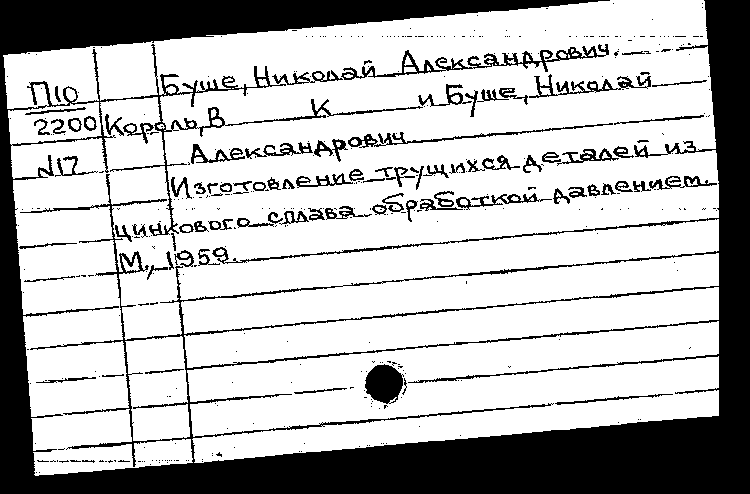 Буше, Николай Александрович.
П10
2200 Король, В К и Буше, Николай
N17 Александрович
Изготовление трущихся деталей из
цинкового сплава обработкой давлением.
М., 1959.